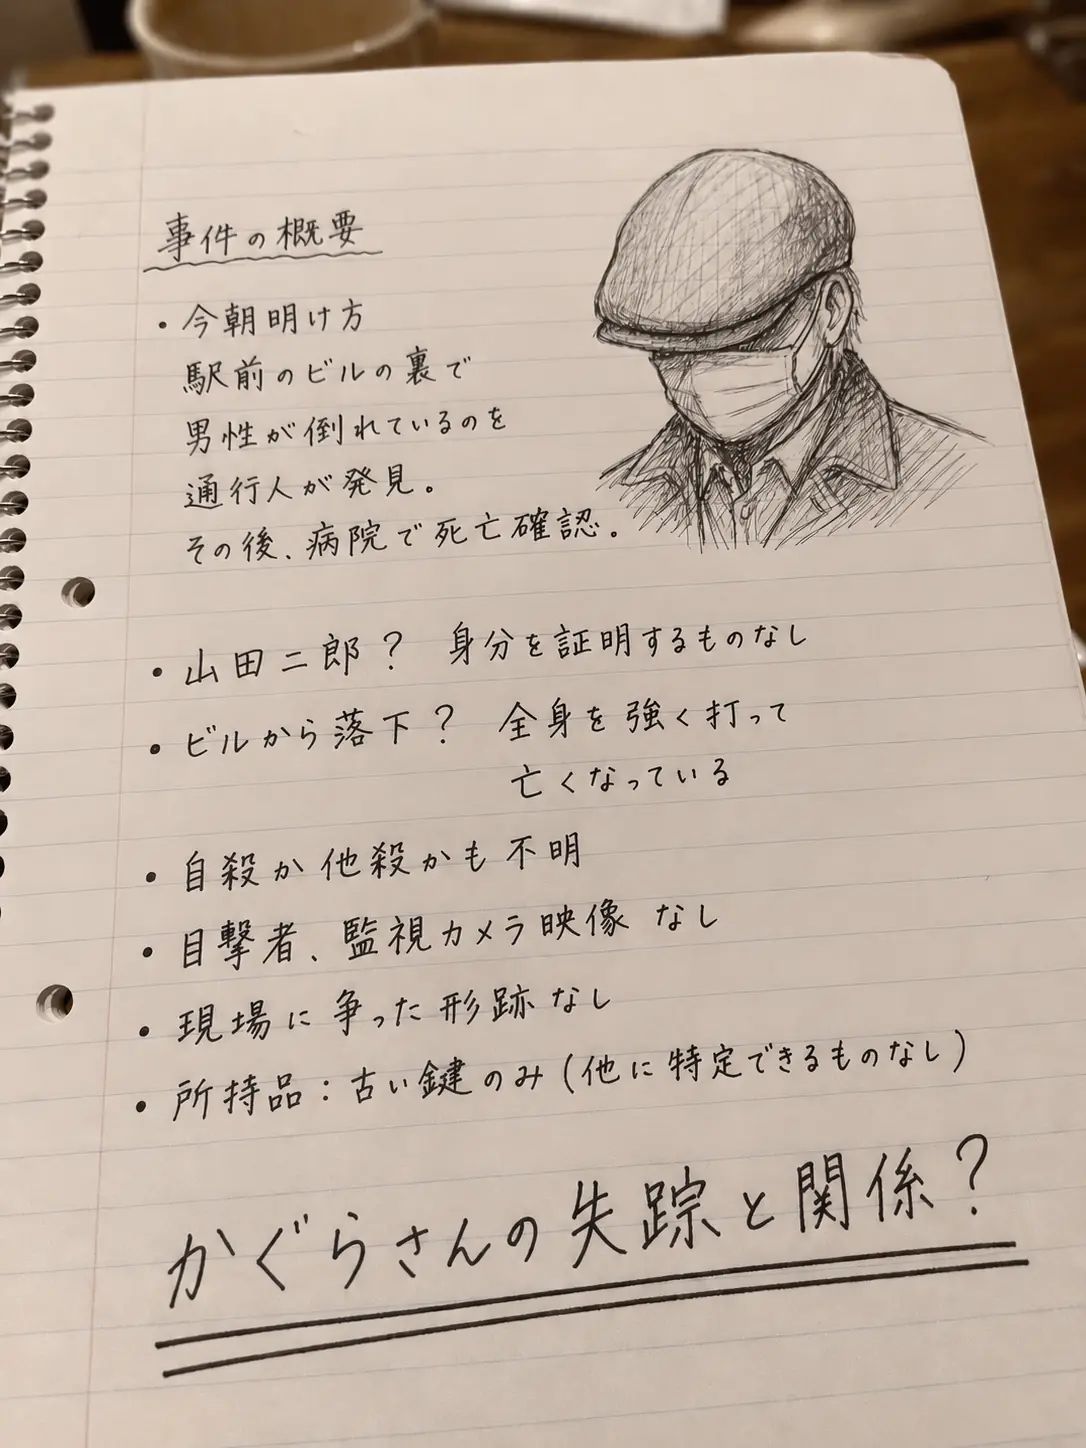 事件の概要
・今朝明け方
駅前のビルの裏で
男性が倒れているのを
通行人が発見。
その後、病院で死亡確認。
・山田二郎？ 身分を証明するものなし
・ビルから落下？ 全身を強く打って
亡くなっている
・自殺か他殺かも不明
・目撃者、監視カメラ映像 なし
・現場に争った形跡なし
・所持品：古い鍵のみ（他に特定できるものなし）
かぐらさんの失踪と関係？